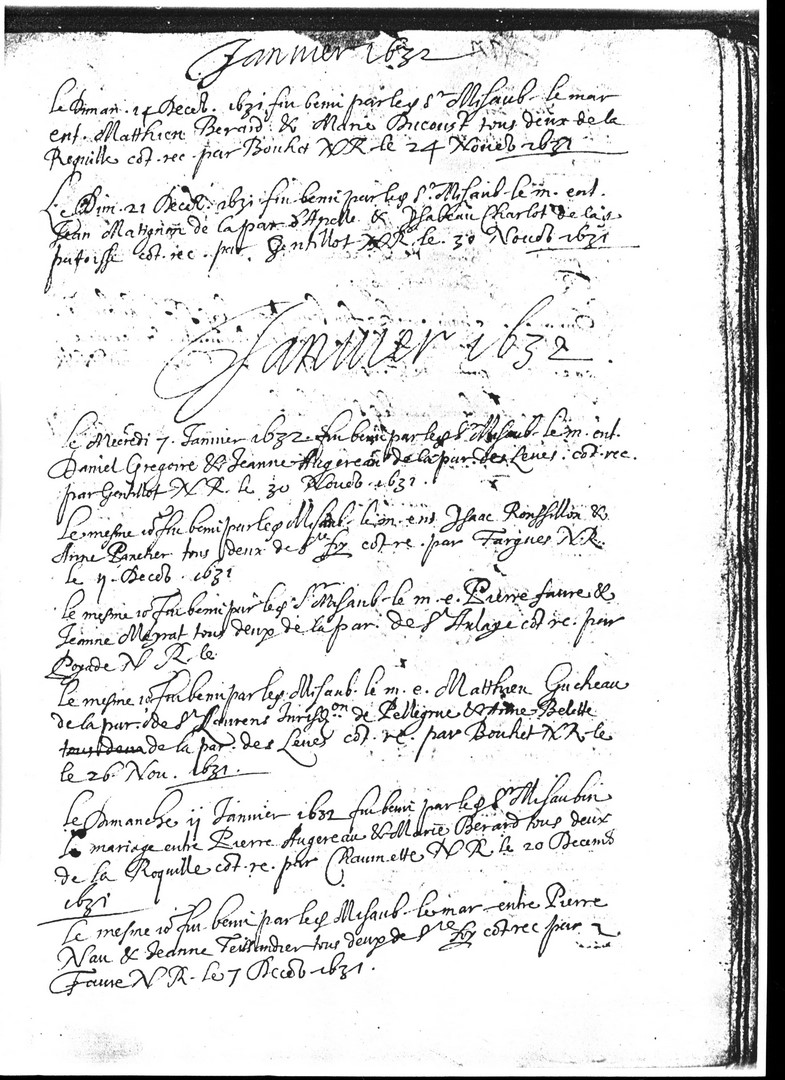 Janvier 1632
le Diman. 14 Deceb. 1631 fu beni par led Sr Misaub. le mar
ent. Matthieu Berard & Marie Ducoust tous deux de la
Roquille cot. rec. par Bouhet N R. le 24 Noveb 1631
Le Dim. 21 Deceb. 1631 fu beni par led Sr Misaub. le m. ent.
Jean Matignon de la par d'Apelle & Isabeau Charlot de la
paroisse cot. rec. par Gentillot N R. le. 30 Noveb 1631
Janvier 1632
le Mecredi 7. Janvier 1632 fu beni par led Sr Misaub. le m. ent.
Daniel Gregoire & Jeanne Augereau de la par. des Leves. cot. rec.
par Gentillot N R. le 30 Noveb 1631.
Le mesme io fu beni par led Misaub. le m. ent Isaac Roussillon &
Anne Pancher tous deux de Ste Foy cot re. par Fargues N.R.
le 11. Deceb. 1631
le mesme io fu beni par led Sr Misaub. le m. e. Pierre faure &
Jeanne Meyrat tous deux de la par. de St Aulaye cot re. par
Pogade N R. le
Le mesme io fu beni par led Misaub. le m. e. Matthieu Gucheau
de la par. de St Laurens Jurisdon de Pellegrue & Anne Belotte
tous deux de la par. des Leves cot. re. par Bouhet N R. le
le 26 Nov. 1631.
le Dimanche 11 Janvier 1632 fu beni par led Sr Misaubin
le mariage entre Pierre Augereau & Marie Berard tous deux
de la Roquille cot. re. par Chaumette N R. le 20 Decemb
1631
Le mesme io fu beni par led Misaub. le mar entre Pierre
Nau & Jeanne Teissandier tous deux de Ste Foy cot rec par
Faure N R. le 7 Deceb 1631.